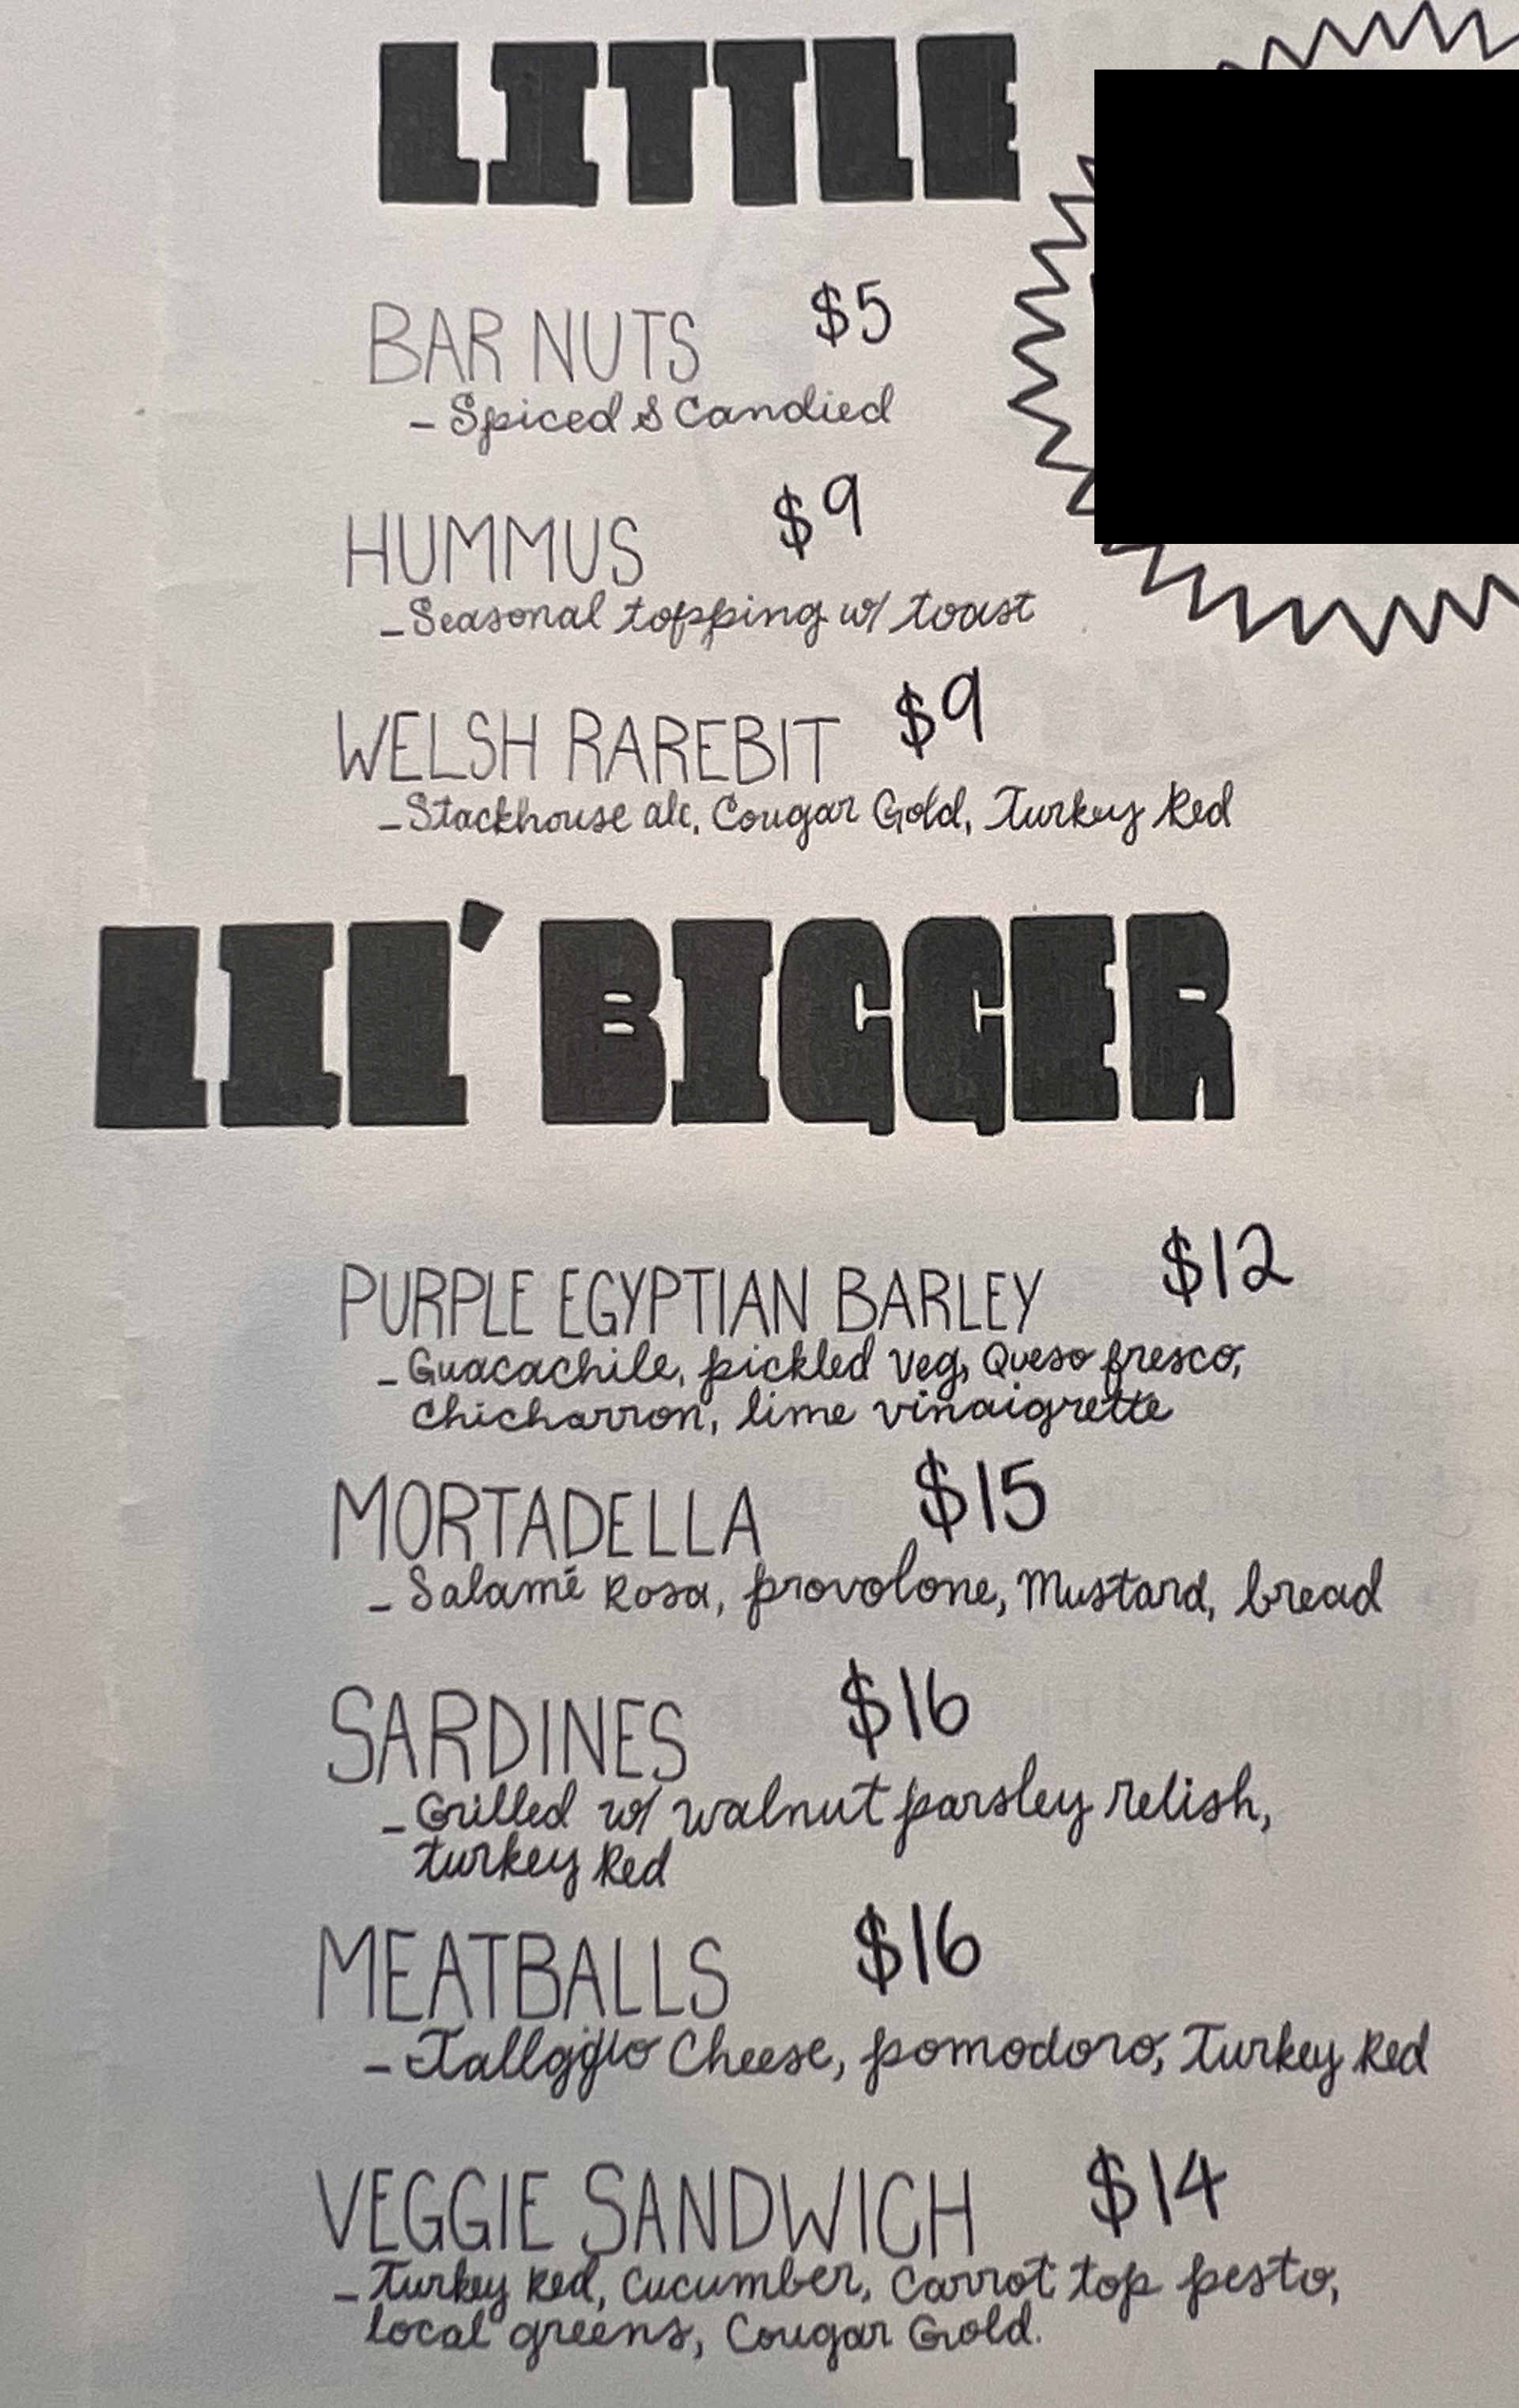 LITTLE
BAR NUTS $5
- Spiced & Candied
HUMMUS $9
- Seasonal topping w/ toast
WELSH RAREBIT $9
- Stackhouse ale, Cougar Gold, Turkey Red
LIL' BIGGER
PURPLE EGYPTIAN BARLEY $12
- Guacachile, pickled veg, Queso fresco,
Chicharron, lime vinaigrette
MORTADELLA $15
- Salamé Rosa, provolone, Mustard, bread
SARDINES $16
- Grilled w/ walnut parsley relish,
turkey Red
MEATBALLS $16
- Cheese, pomodoro, Turkey Red
VEGGIE SANDWICH $14
- Turkey Red, Cucumber, Carrot top pesto,
local greens, Cougar Gold.